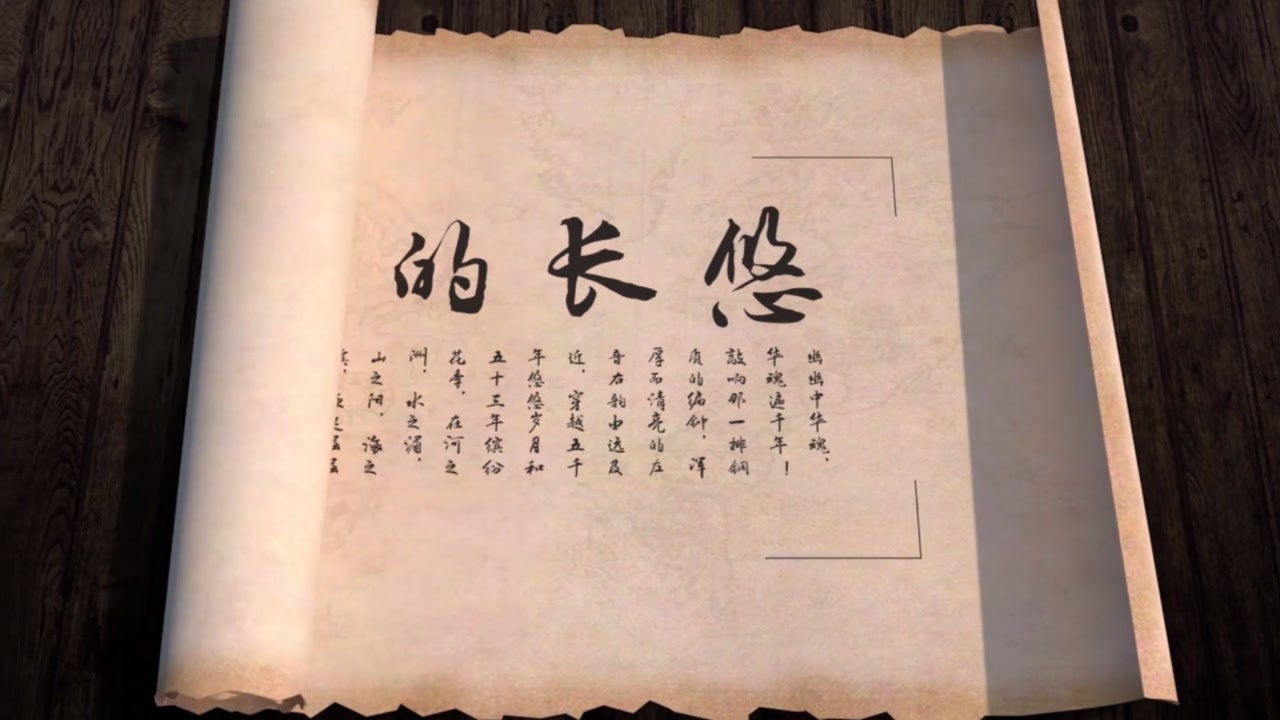 悠长的
幽幽中华魂，
华魂遍千年！
敲响那一排铜
质的编钟，浑
厚而清亮的在
音右韵由远及
近，穿越五千
年悠悠岁月和
五十三年缤纷
花季，在河之
洲，水之湄，
山之阳，海之